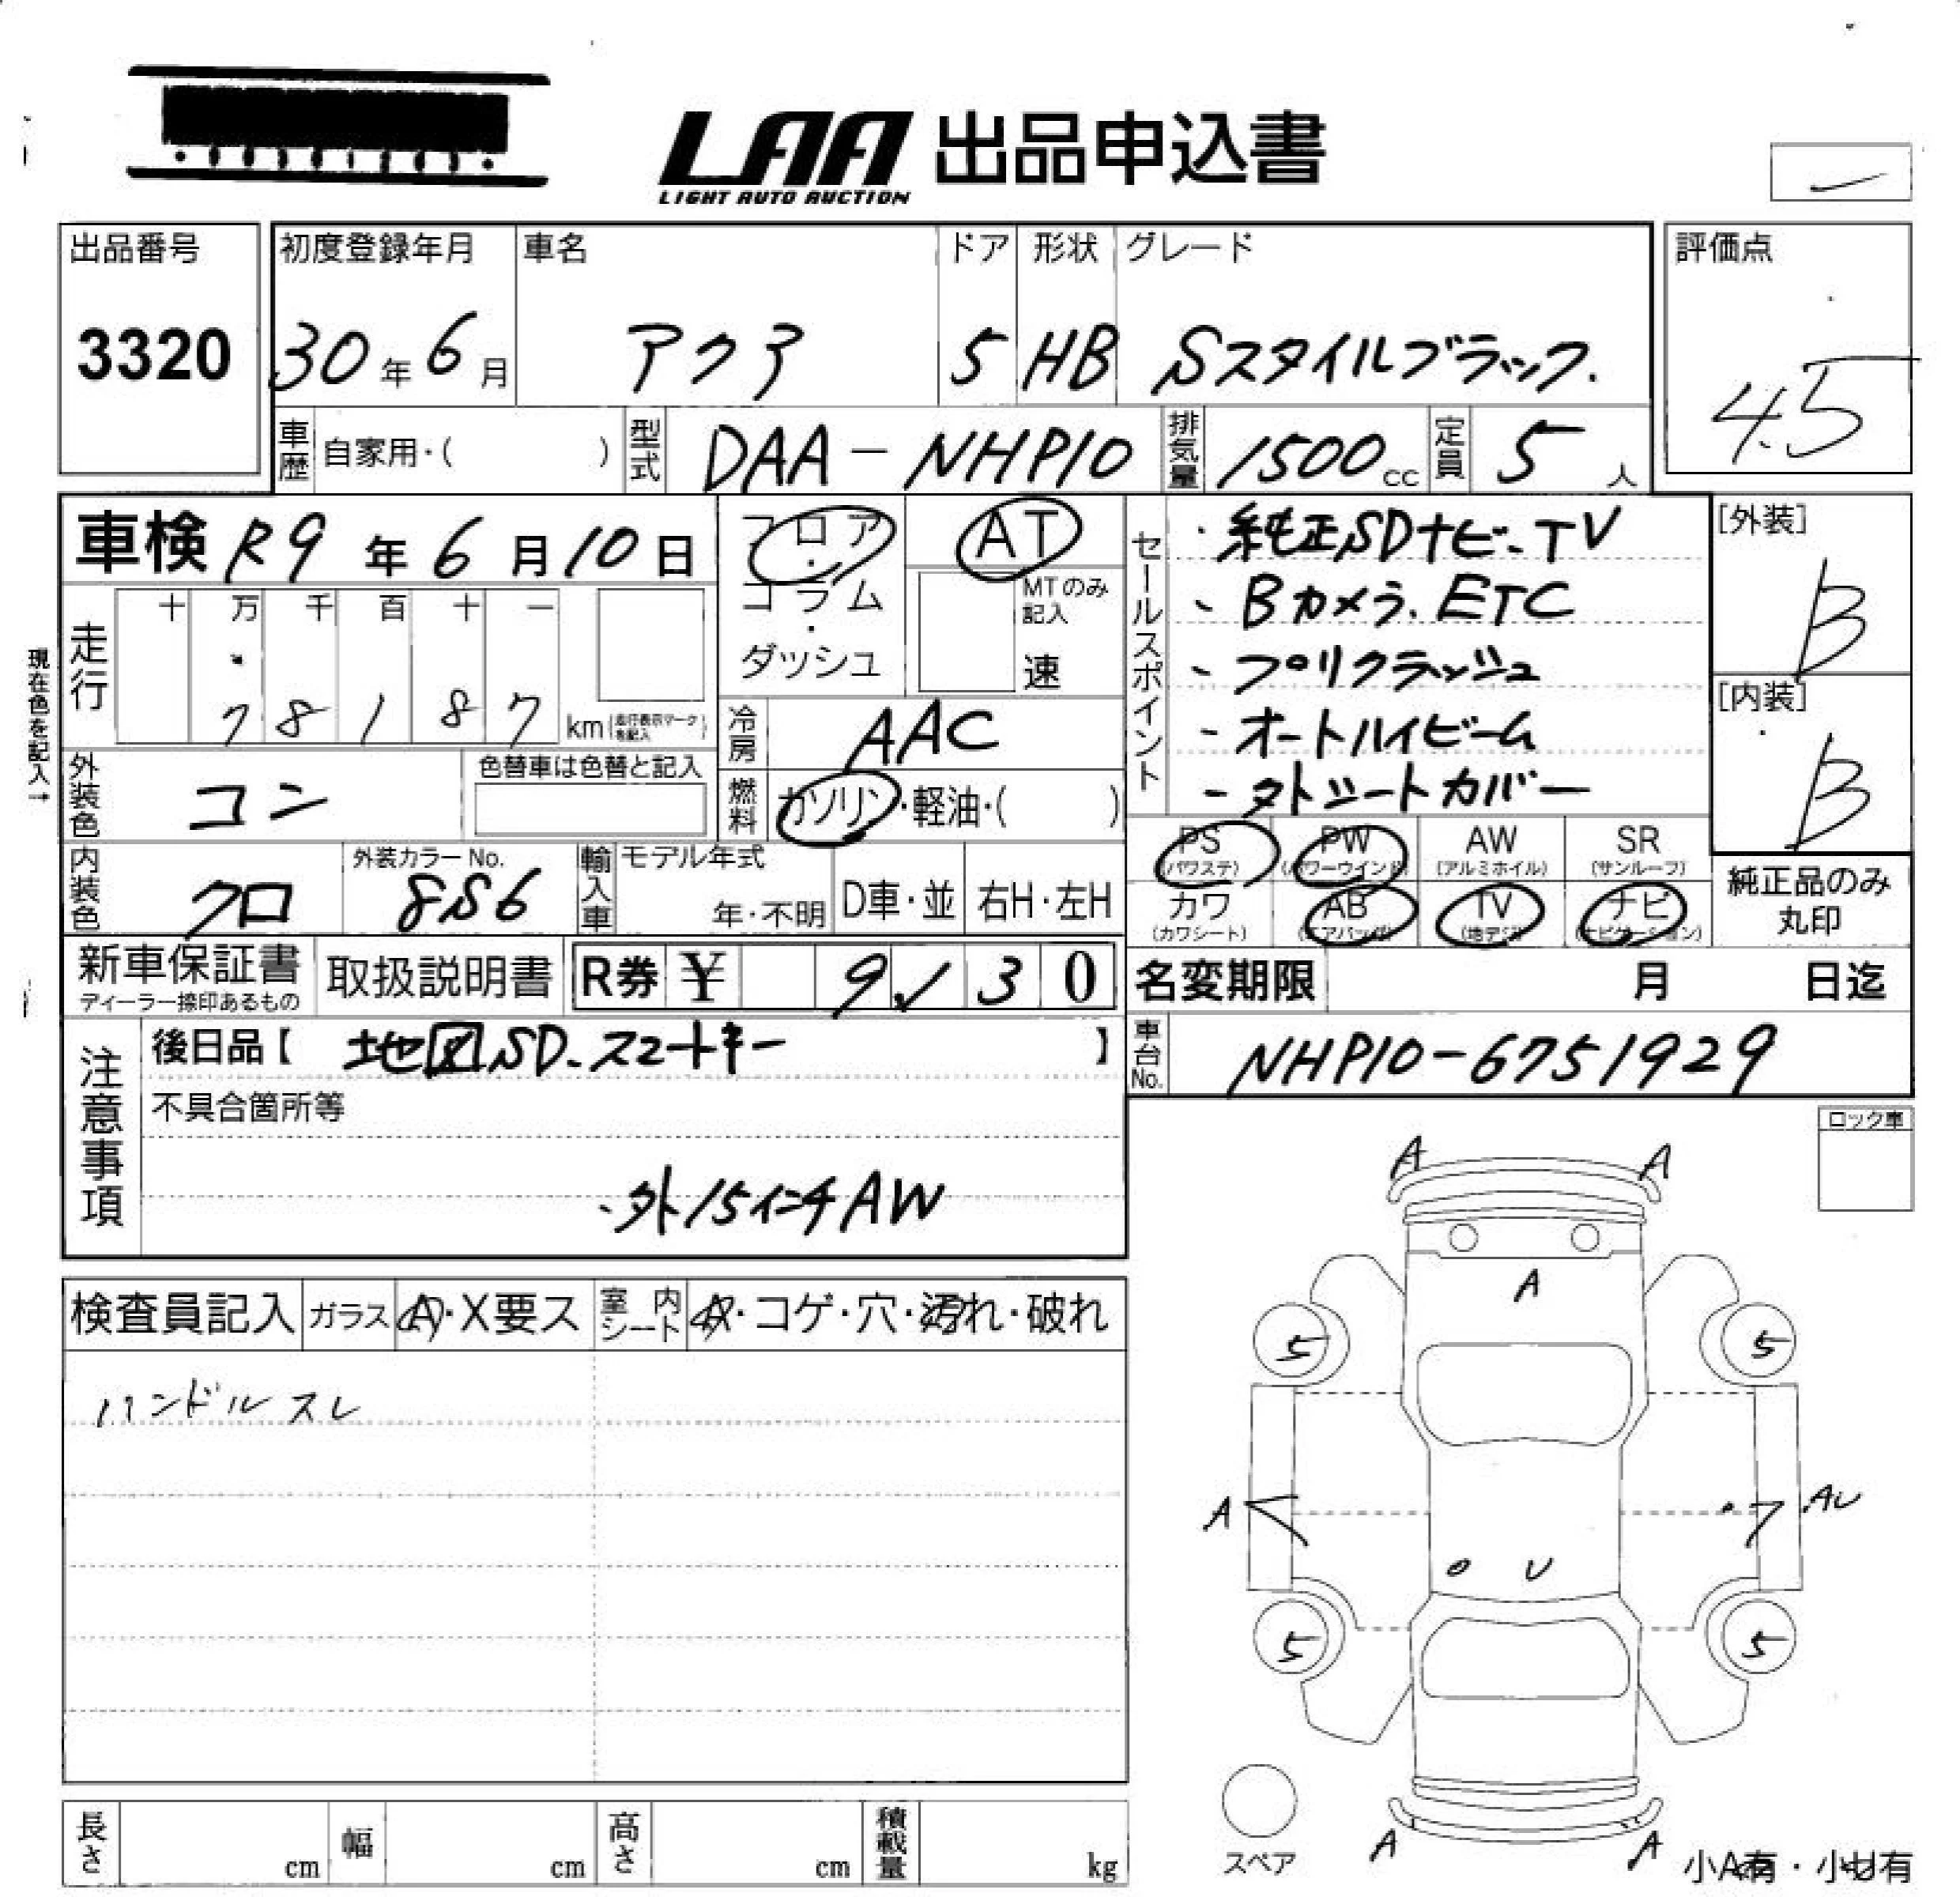 LAA 出品申込書
LIGHT AUTO AUCTION
出品番号
3320
初度登録年月
30年6月
車名
アクア
ドア
5
形状
HB
グレード
Sスタイルブラック.
評価点
4.5
車歴 自家用・( )
型式 DAA-NHP10
排気量 1500cc
定員 5人
車検 R9年6月10日
フロア・コラム・ダッシュ
AT
MTのみ記入
速
セールスポイント
・純正SDナビ-TV
、Bカメラ.ETC
-プリクラッシュ
-オートハイビーム
-タトシートカバー
[外装]
B
[内装]
B
現在色を記入→
走行
十 万 千 百 十 一
7 8 1 8 7 km (走行表示マークを記入)
冷房 AAC
外装色 コン
色替車は色替と記入
燃料 ガソリン・軽油・( )
内装色 クロ
外装カラーNo.
8S6
輸入車
モデル年式
年・不明
D車・並
右H・左H
PS (パワステ)
PW (パワーウインド)
AW (アルミホイル)
SR (サンルーフ)
カワ (カワシート)
AB (エアバッグ)
TV (地デジ)
ナビ (ナビゲーション)
純正品のみ丸印
新車保証書
ディーラー捺印あるもの
取扱説明書
R券 ¥ 9 3 0
名変期限 月 日迄
注意事項
後日品【 地図SD.スマートキー 】
車台No. NHP10-6751929
不具合箇所等
、外15インチAW
ロック車
検査員記入
ガラス Ⓐ・X要ス
室内シート ・コゲ・穴・汚れ・破れ
ハンドルスレ
A A
A
5 5
A AU
U
5 5
スペア
A A
小A有・小U有
長さ cm
幅 cm
高さ cm
積載量 kg